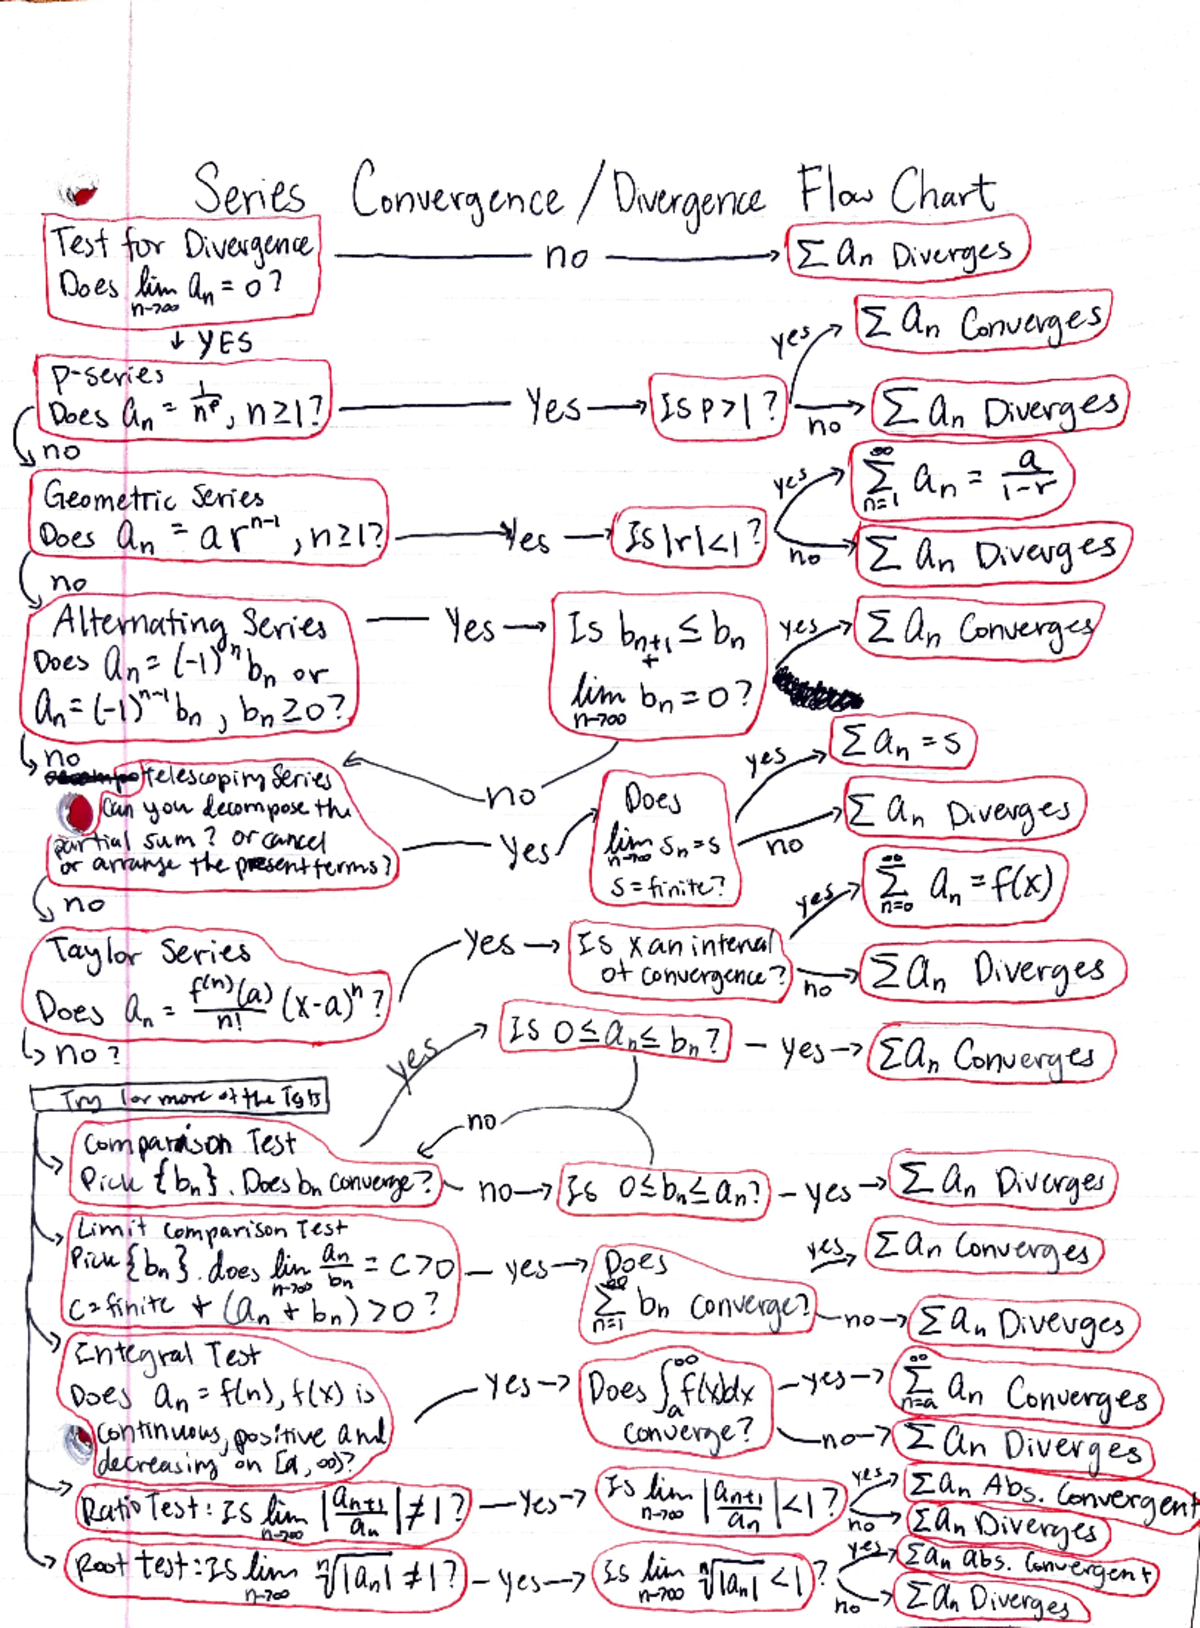 Series Convergence / Divergence Flow Chart
Test for Divergence
Does lim n→∞ an = 0?
no
Σ an Diverges
↓ YES
P-series
Does an = 1/n^p, n≥1?
Yes
Is p>1?
yes
Σ an Converges
no
Σ an Diverges
no
Geometric Series
Does an = ar^(n-1), n≥1?
Yes
Is |r|<1?
yes
∞ Σ n=1 an = a/(1-r)
no
Σ an Diverges
no
Alternating Series
Does an = (-1)^n bn or
an = (-1)^(n-1) bn, bn ≥0?
Yes
Is bn+1 ≤ bn
+
lim n→∞ bn = 0?
yes
Σ an Converges
no
no
telescoping Series
Can you decompose the
partial sum? or cancel
or arrange the present terms?
Yes
Does
lim n→∞ sn = s
s = finite?
yes
Σ an = s
no
Σ an Diverges
no
Taylor Series
Does an = f^(n)(a)/n! (x-a)^n?
Yes
Is x an interval
of convergence?
yes
∞ Σ n=0 an = f(x)
no
Σ an Diverges
no?
Try 1 or more of the Tests
Comparison Test
Pick {bn}. Does bn converge?
yes
Is 0≤an≤bn?
yes
Σ an Converges
no
no
Is 0≤bn≤an?
yes
Σ an Diverges
Limit Comparison Test
Pick {bn}. does lim n→∞ an/bn = C>0
C=finite + (an + bn) >0?
yes
Does
∞ Σ n=1 bn converge?
yes
Σ an Converges
no
Σ an Diverges
Integral Test
Does an = f(n), f(x) is
continuous, positive and
decreasing on [a, ∞)?
Yes
Does ∫a^∞ f(x)dx
converge?
yes
∞ Σ n=a an Converges
no
Σ an Diverges
Ratio Test: Is lim n→∞ |an+1/an| ≠ 1?
Yes
Is lim n→∞ |an+1/an| <1?
yes
Σ an Abs. Convergent
no
Σ an Diverges
Root test: Is lim n→∞ n√|an| ≠ 1?
yes
Is lim n→∞ n√|an| <1?
yes
Σ an abs. Convergent
no
Σ an Diverges